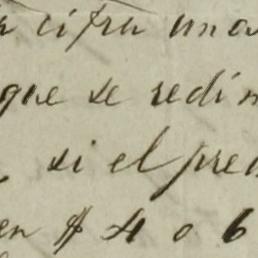 cifra una
que se redi
si el pre
en $ 4 o 6